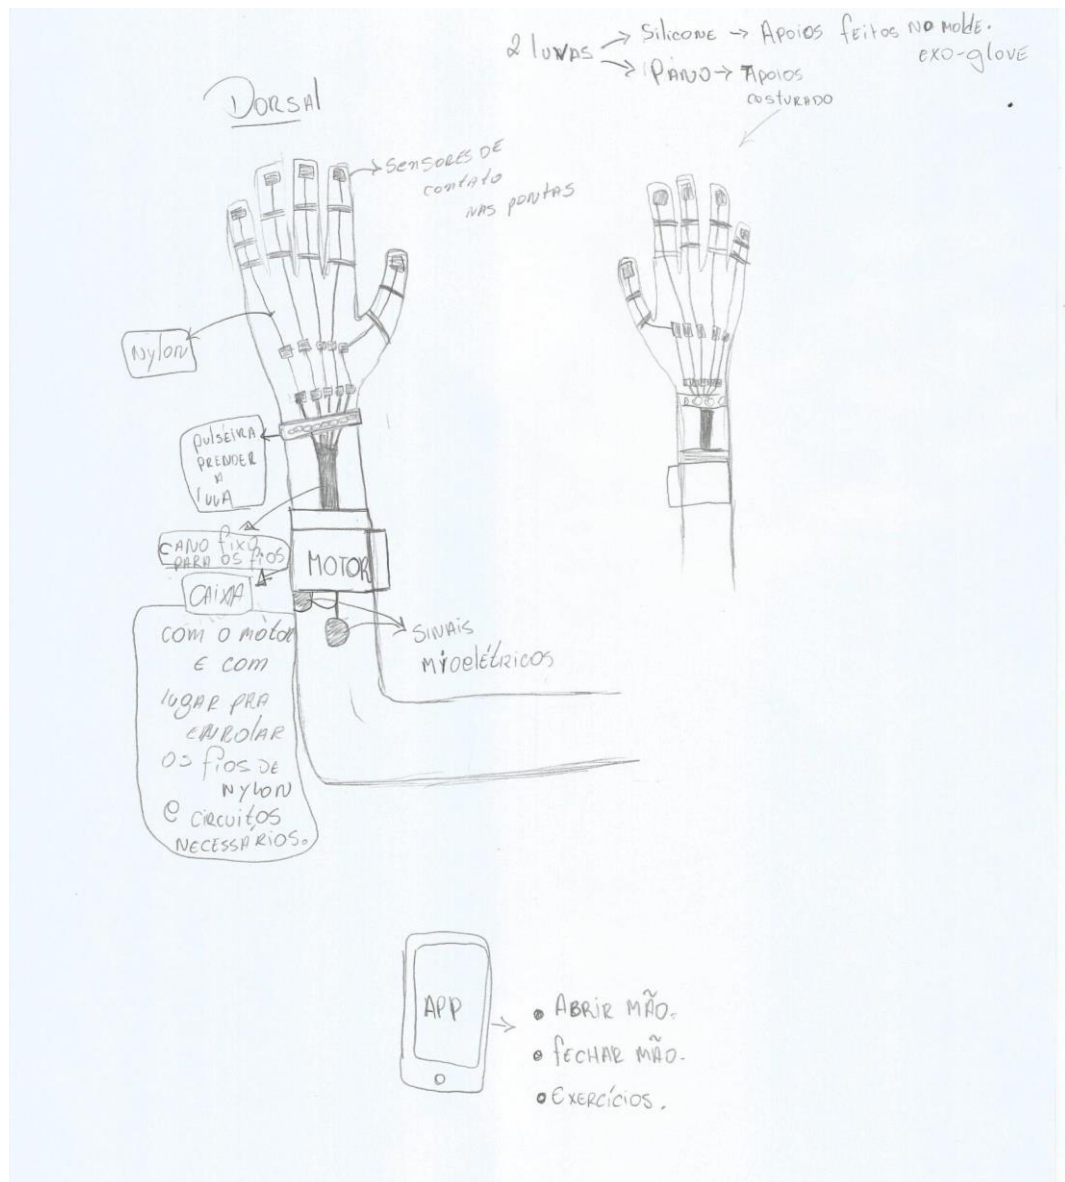 2 luvas → Silicone → Apoios feitos no molde.
exo-glove
→ Pano → Apoios
costurado
Dorsal
Sensores de
contato
nas pontas
Nylon
pulseira
prender
a
luva
Cano fixo
para os fios
Caixa
com o motor
e com
lugar pra
enrolar
os fios de
nylon
e circuitos
necessários.
MOTOR
Sinais
myoelétricos
APP
→ • Abrir mão.
• Fechar mão.
• Exercícios.